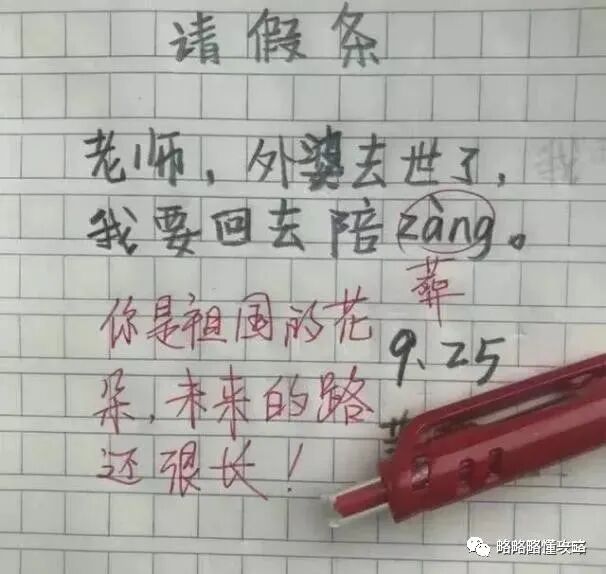 请假条
老师，外婆去世了，
我要回去陪zàng。
葬
你是祖国的花
朵，未来的路
还很长！
9.25
略略略懂攻略